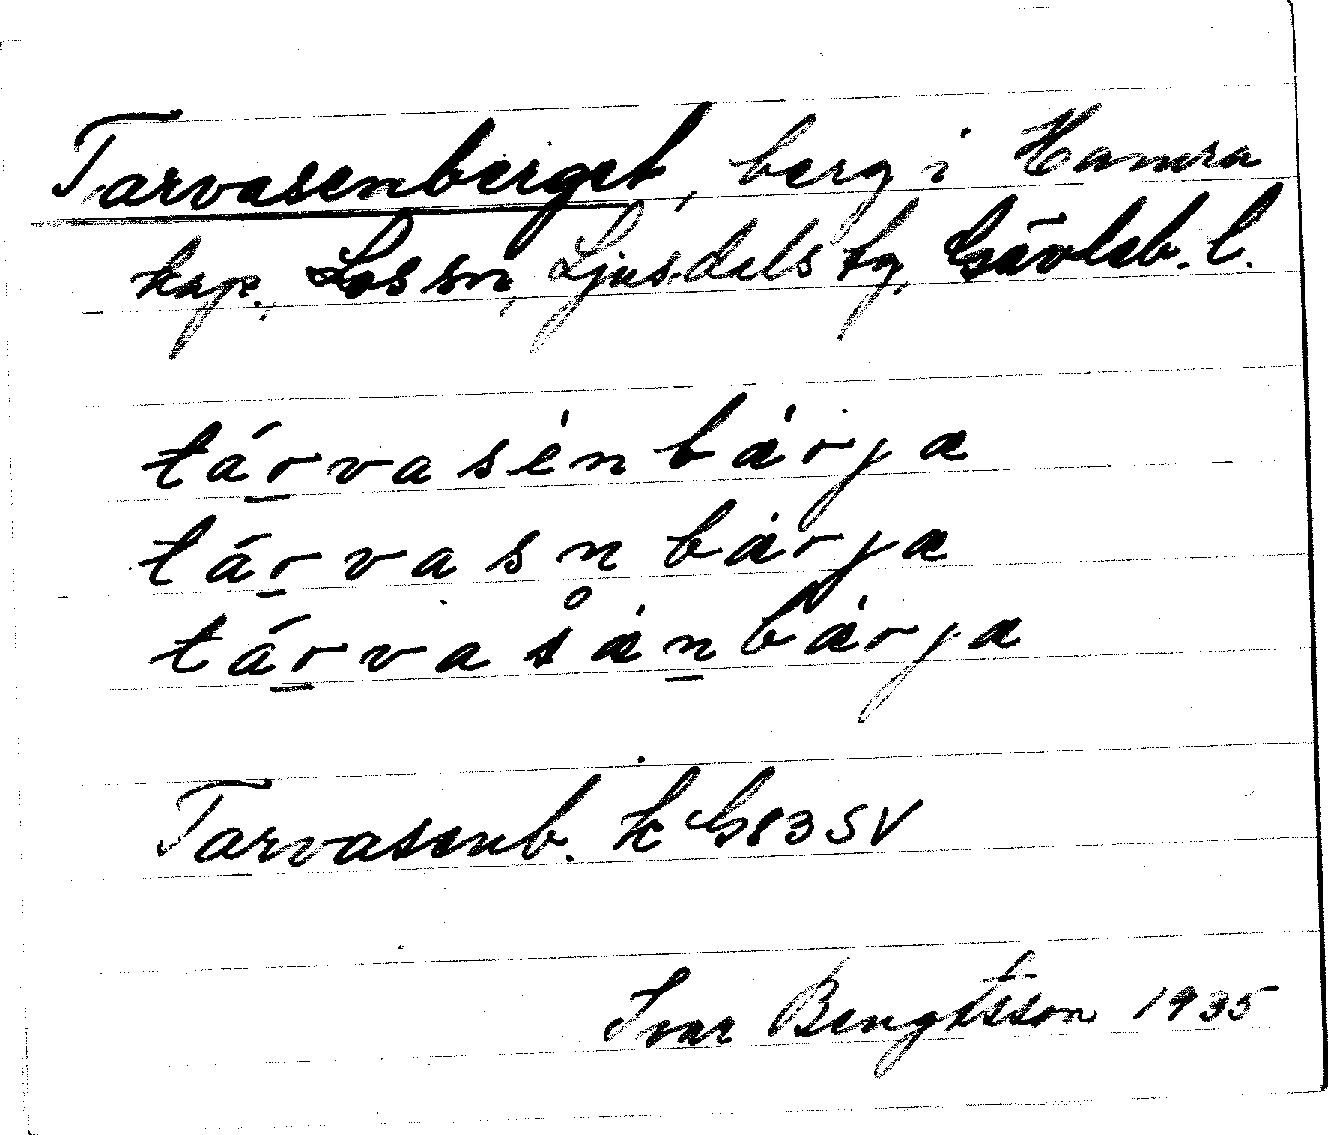 Tarvasenberget, berg i Hamra
kap., Los sn, Ljusdals tg, Gävleb. l.
tárvasènbärja
tárvasnbärja
tárvasånbärja
Tarvasenb. K G83SV
Ivar Bengtsson 1935